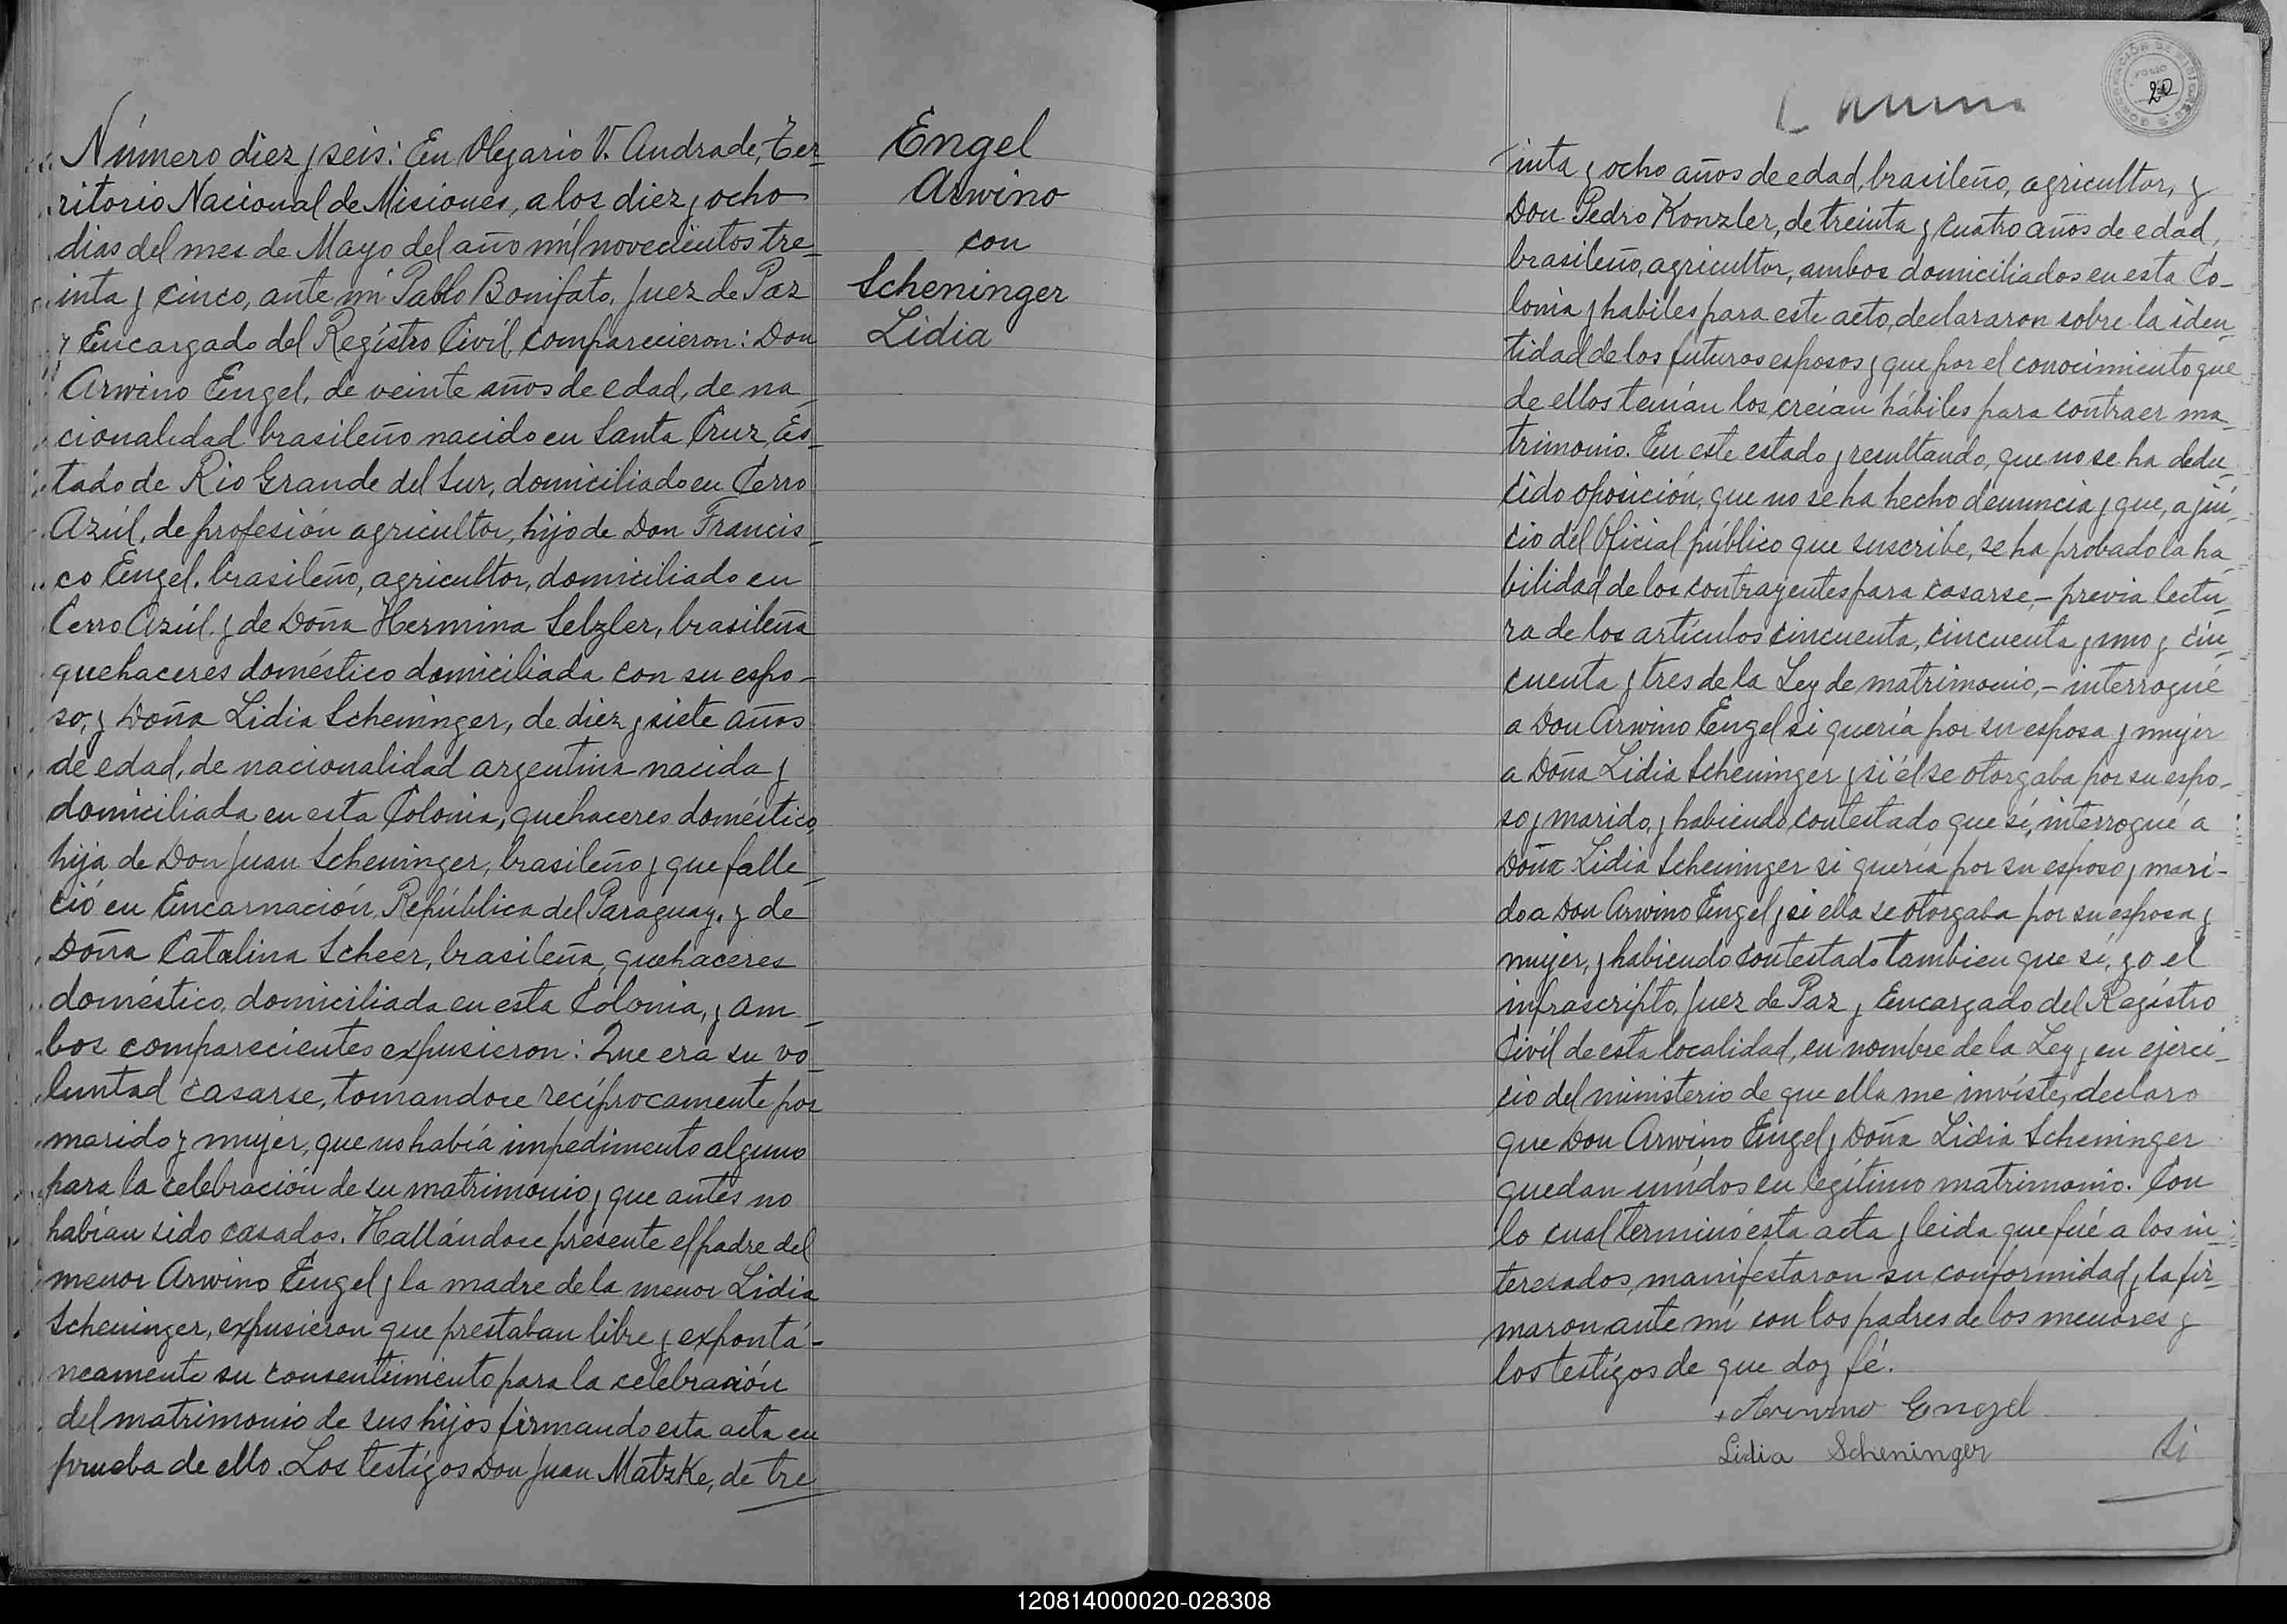 Número diez y seis: En Olegario V. Andrade, Ter-
ritorio Nacional de Misiones, a los diez y ocho
dias del mes de Mayo del año mil novecientos tre-
inta y cinco, ante mi Pablo Bonifato, Juez de Paz
y Encargado del Registro Civil, comparecieron: Don
Arwino Engel, de veinte años de edad, de na-
cionalidad brasileño nacido en Santa Cruz, Es-
tado de Rio Grande del Sur, domiciliado en Cerro
Azúl, de profesión agricultor, hijo de Don Francis-
co Engel, brasileño, agricultor, domiciliado en
Cerro Azúl, y de Doña Hermina Selzler, brasileña
quehaceres doméstico domiciliada con su espo-
so, y Doña Lidia Scheninger, de diez y siete años
de edad, de nacionalidad argentina nacida y
domiciliada en esta Colonia, quehaceres doméstico,
hija de Don Juan Scheninger, brasileño y que falle-
ció en Encarnación, República del Paraguay, y de
Doña Catalina Scheer, brasileña, quehaceres
doméstico, domiciliada en esta Colonia, y am-
bos comparecientes expusieron: Que era su vo-
luntad casarse, tomandose recíprocamente por
marido y mujer, que no había impedimento alguno
para la celebración de su matrimonio y que antes no
habían sido casados. Hallándose presente el padre del
menor Arwino Engel y la madre de la menor Lidia
Scheninger, expusieron que prestaban libre y expontá-
neamente su consentimiento para la celebración
del matrimonio de sus hijos firmando esta acta en
prueba de ello. Los testigos Don Juan Matzke, de tre
Engel
Arwino
con
Scheninger
Lidia
20
inta y ocho años de edad, brasileño, agricultor, y
Don Pedro Konzler, de treinta y cuatro años de edad,
brasileño, agricultor, ambos domiciliados en esta Co-
lonia y habiles para este acto, declararon sobre la iden-
tidad de los futuros esposos y que por el conocimiento que
de ellos tenían los creían hábiles para contraer ma-
trimonio. En este estado y resultando, que no se ha dedu-
cido oposición, que no se ha hecho denuncia y que, a jui-
cio del Oficial público que suscribe, se ha probado la ha-
bilidad de los contrayentes para casarse,- previa lectu-
ra de los artículos cincuenta, cincuenta y uno y cin-
cuenta y tres de la Ley de matrimonio,- interrogué
a Don Arwino Engel si quería por su esposa y mujer
a Doña Lidia Scheninger y si él se otorgaba por su espo-
so y marido, y habiendo contestado que sí, interrogué a
Doña Lidia Scheninger si quería por su esposo y mari-
do a Don Arwino Engel y si ella se otorgaba por su esposa y
mujer, y habiendo contestado tambien que sí, yo el
infrascripto, Juez de Paz y Encargado del Registro
Civil de esta localidad, en nombre de la Ley y en ejerci-
cio del ministerio de que ella me inviste, declaro
que Don Arwino Engel y Doña Lidia Scheninger
quedan unidos en legítimo matrimonio. Con
lo cual terminó esta acta y leida que fué a los in-
teresados, manifestaron su conformidad y la fir-
maron ante mí con los padres de los menores y
los testigos de que doy fé.
Engel
Lidia Scheninger
Si
120814000020-028308